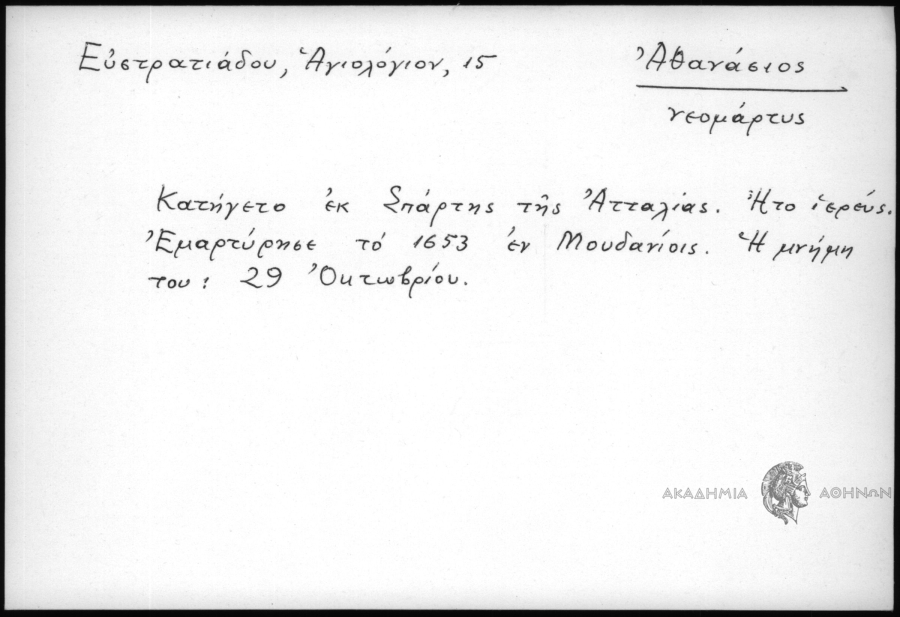 Εὐστρατιάδου, Ἁγιολόγιον, 15
Ἀθανάσιος
νεομάρτυς
Κατήγετο ἐκ Σπάρτης τῆς Ἀτταλίας. Ἦτο ἱερεύς.
Ἐμαρτύρησε τό 1653 ἐν Μουδανίοις. Ἡ μνήμη
του: 29 Ὀκτωβρίου.
ΑΚΑΔΗΜΙΑ ΑΘΗΝΩΝ